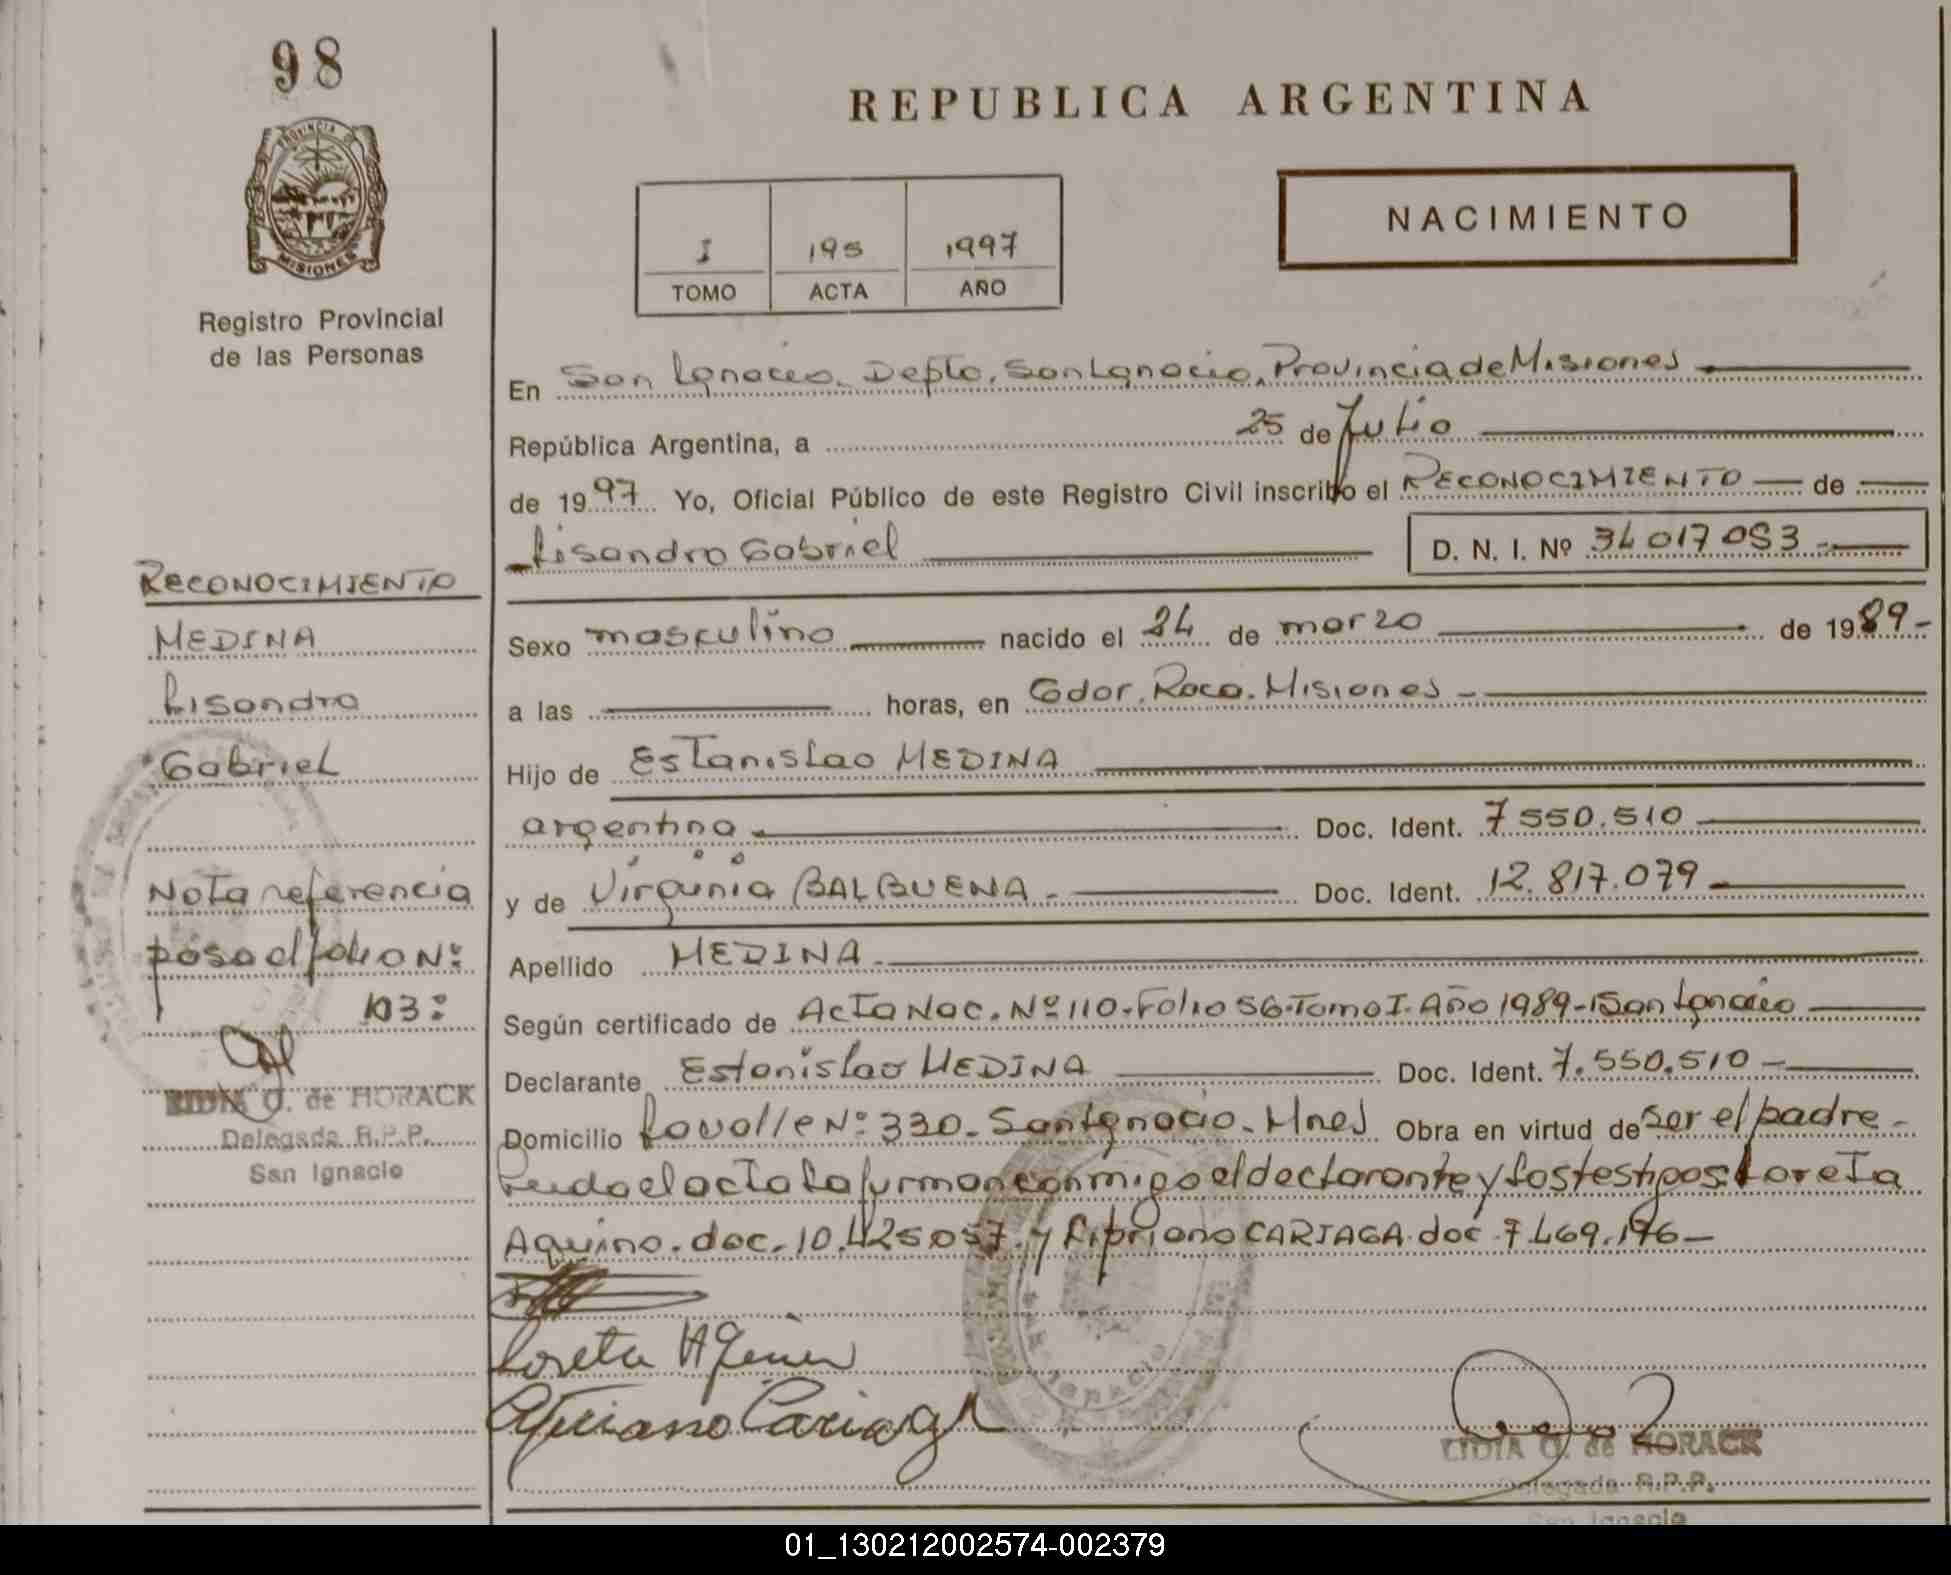 98
PROVINCIA DE
MISIONES
Registro Provincial
de las Personas
RECONOCIMIENTO
MEDINA
Lisandro
Gabriel
Nota referencia
pasa al folio Nº
103:
LIDIA O. de HORACK
Delegada R.P.P.
San Ignacio
REPUBLICA ARGENTINA
NACIMIENTO
I 195 1997
TOMO ACTA AÑO
En San Ignacio. Depto. San Ignacio, Provincia de Misiones
República Argentina, a 25 de Julio
de 1997 Yo, Oficial Público de este Registro Civil inscribo el RECONOCIMIENTO de
Lisandro Gabriel D. N. I. Nº 34 017 093
Sexo masculino nacido el 24 de marzo de 1989-
a las horas, en Gdor. Roca. Misiones -
Hijo de Estanislao MEDINA
argentino Doc. Ident. 7 550.510
y de Virginia BALBUENA - Doc. Ident. 12.817.079
Apellido MEDINA -
Según certificado de Acta Nac. Nº 110-Folio 56-Tomo I. Año 1989- San Ignacio
Declarante Estanislao MEDINA Doc. Ident. 7.550.510 -
Domicilio Lavalle Nº 330 - San Ignacio - Mnes Obra en virtud de ser el padre -
Leida el acta la firman conmigo el declarante y los testigos: Loreta
Aquino. doc. 10.425 057. y Cipriano CARIAGA. doc 7.469.176-
Loreta
Cipriano Cariaga
LIDIA O. de HORACK
Delegada R.P.P.
San Ignacio
01_130212002574-002379